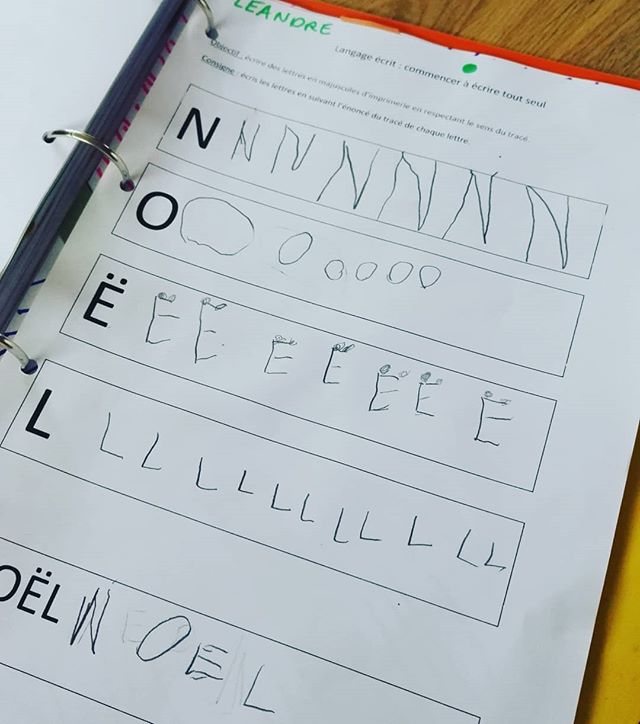 LEANDRE
Langage écrit : commencer à écrire tout seul
Objectif : écrire des lettres en majuscules d'imprimerie en respectant le sens du tracé.
Consigne : écris les lettres en suivant l'énoncé du tracé de chaque lettre.
N N N N N N N
O O O O O O O
Ë Ë Ë Ë Ë Ë Ë Ë
L L L L L L L L L L L L
OËL N O E L